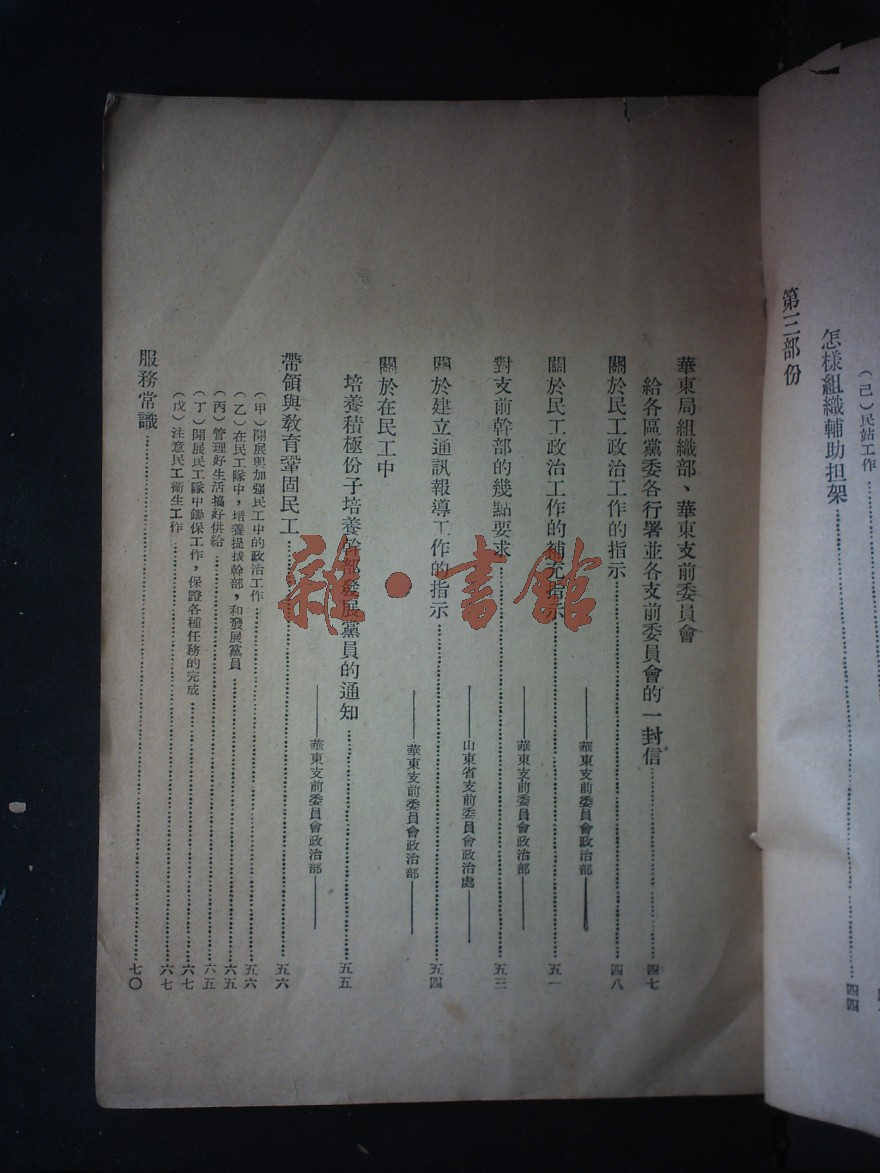 （己）民站工作
怎樣組織輔助担架……四四
第三部份
華東局組織部、華東支前委員會
給各區黨委各行署並各支前委員會的一封信……四七
關於民工政治工作的指示……四八
——華東支前委員會政治部——
關於民工政治工作的補充指示……五一
——華東支前委員會政治部——
對支前幹部的幾點要求……五三
——山東省支前委員會政治處——
關於建立通訊報導工作的指示……五四
——華東支前委員會政治部——
關於在民工中
培養積極份子培養幹部發展黨員的通知……五五
——華東支前委員會政治部——
帶領與教育鞏固民工……五六
（甲）開展與加強民工中的政治工作……五六
（乙）在民工隊中，培養提拔幹部，和發展黨員……六五
（丙）管理好生活搞好供給……六五
（丁）開展民工隊中鋤保工作，保證各種任務的完成……六七
（戊）注意民工衛生工作……六七
服務常識……七〇
雜·書館